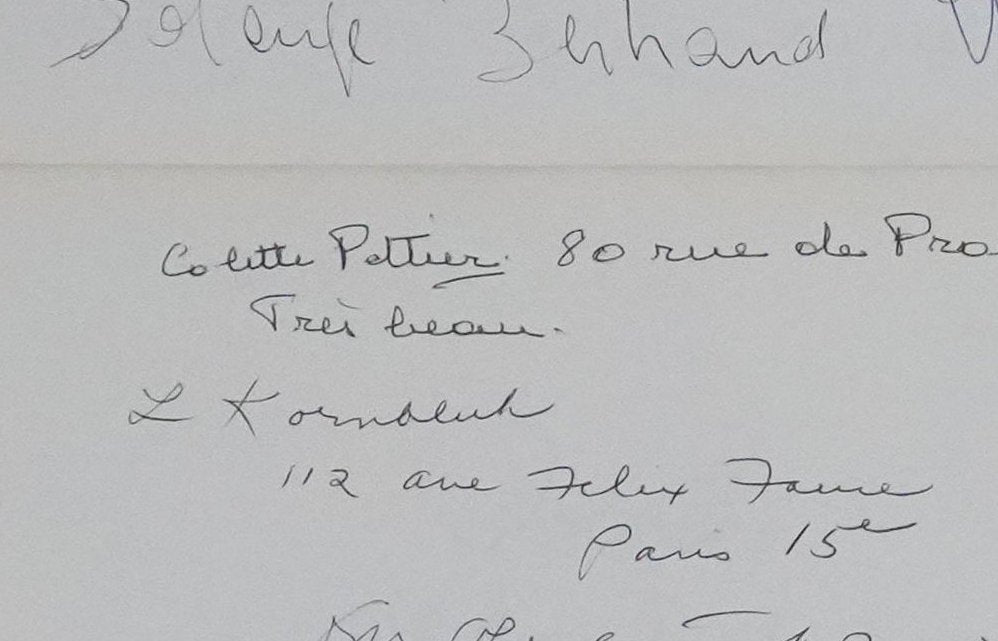 Solange Bertrand
Colette Peltier. 80 rue de Pro
Très beau.
L Kornbluh
112 ave Felix Faure
Paris 15e